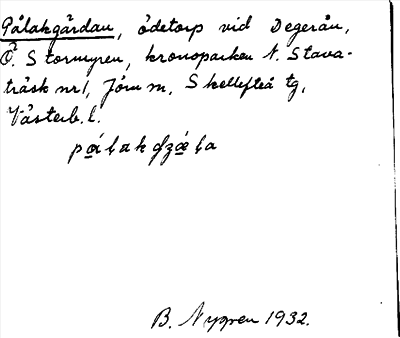 Pålakgårdan, ödetorp vid Degerån,
Ö. Stormyren, kronoparken N. Stava-
träsk nr 1, Jörn sn, Skellefteå tg,
Västerb. l.
B. Nygren 1932.